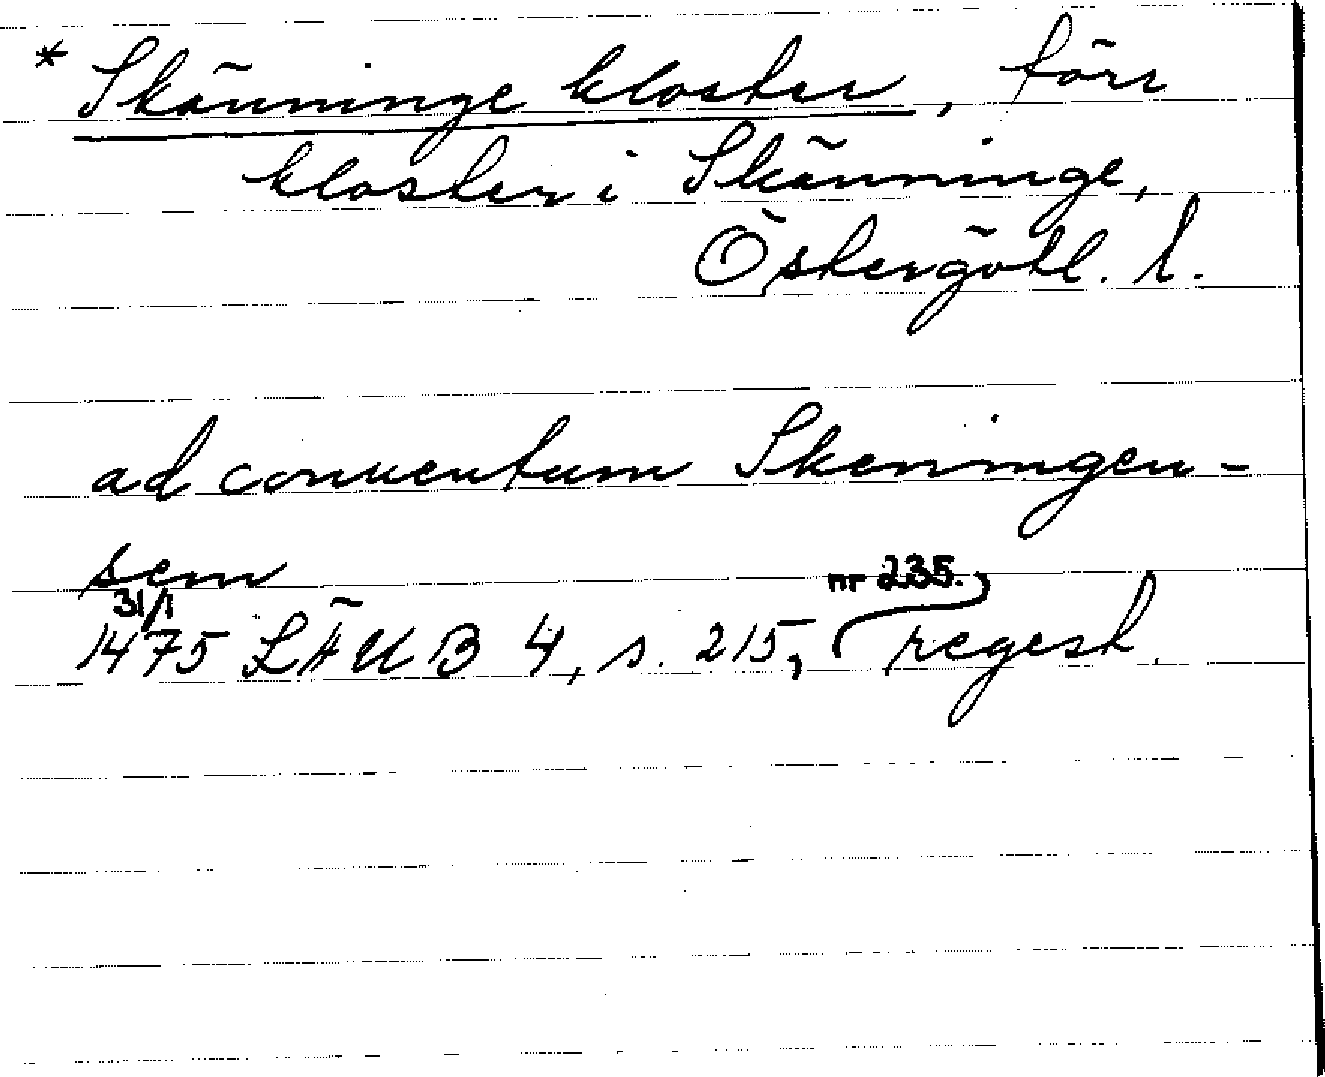 * Skänninge kloster, förr
kloster i Skänninge,
Östergötl. l.
ad conuentum Skeningen-
sem
31/1 nr 235.
1475 LÄUB 4, s. 215, regest.